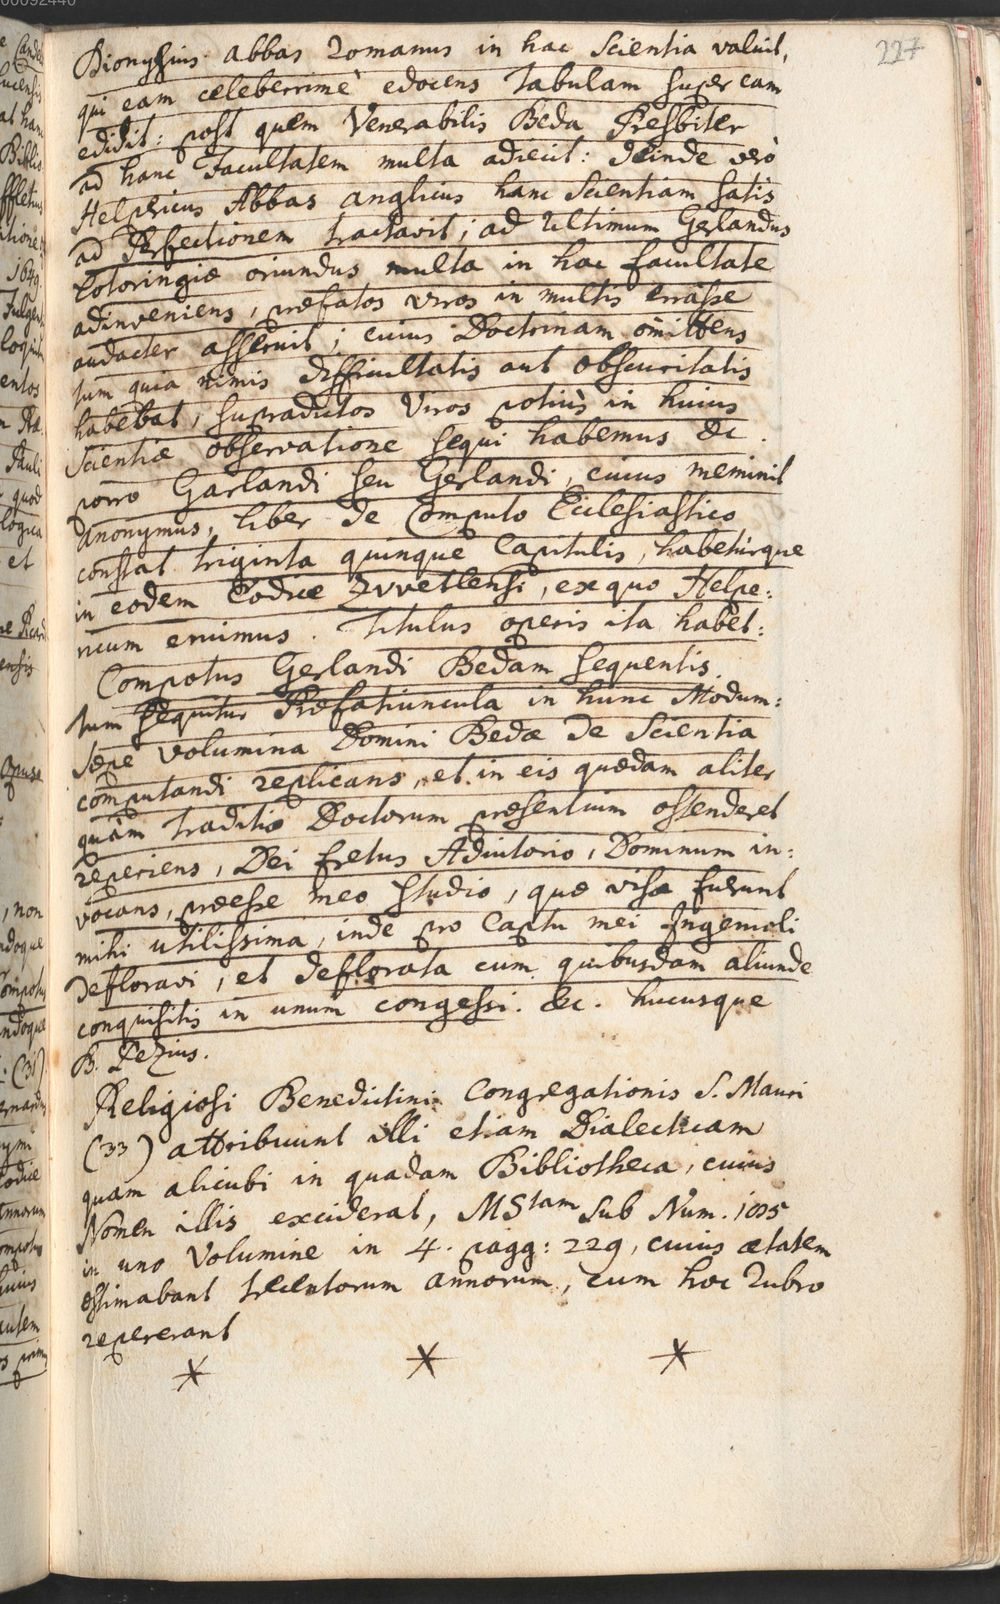 227
Dionysius abbas Romanus in hac Scientia valuit,
qui eam celeberrimè edocens Tabulam super eam
edidit: post quem Venerabilis Beda Presbiter
ad hanc Facultatem multa adiecit: deinde verò
Helpricus Abbas anglicus hanc Scientiam satis
ad Perfectionem tractavit; ad Ultimum Gerlandus
Lotoringiæ oriundus multa in hac facultate
adinveniens, præfatos viros in multis errasse
audacter asseruit; cuius Doctrinam omittens
tum quia nimis difficultatis aut obscuritatis
habebat, supradictos Viros potiùs in huius
Scientiæ observatione sequi habemus &c.
porro Garlandi seu Gerlandi, cuius meminit
Anonymus, liber de Computo Ecclesiastico
constat triginta quinque Capitulis, habetúrque
in eodem Codice Zwetlensi, ex quo Helpe:
ricum eruimus. Titulus operis ita habet:
Compotus Gerlandi Bedam sequentis.
tum sequitur Præfatiuncula in hunc Modum:
Sæpe volumina Domini Bedæ de Scientia
computandi replicans, et in eis quædam aliter
quàm traditio Doctorum præsentium ostenderet
reperiens, Dei fretus Adiutorio, Dominum in:
vocans, præesse meo studio, quæ visa fuerunt
mihi utilissima, inde pro Captu mei Ingenioli
defloravi, et deflorata cum quibusdam aliunde
conquisitis in unum congessi. &c. hucusque
B. Pezius.
Religiosi Benedictini Congregationis S. Mauri
(33) attribuunt illi etiam Dialecticam
quam alicubi in quadam Bibliotheca, cuius
Nomen illis exciderat, MStam sub Num. 1095
in uno Volumine in 4. pagg: 229, cuius ætatem
æstimabant trecentorum annorum, cum hoc Rubro
repererant
* * *